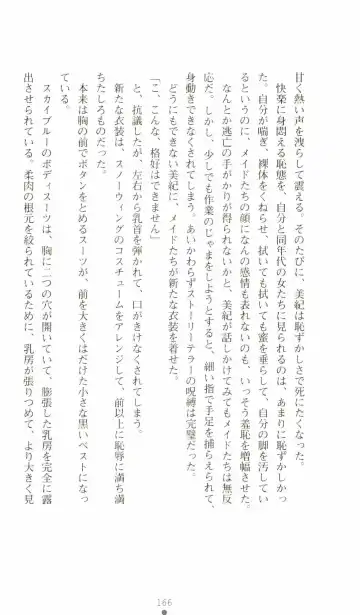 甘く熱い声を洩らして震える。そのたびに、美紀は恥ずかしさで死にたくなった。
快楽に身悶える恥態を、自分と同年代の女たちに見られるのは、あまりに恥ずかしかっ
た。自分が喘ぎ、裸体をくねらせ、拭いても拭いても蜜を垂らして、自分の脚を汚してい
るというのに、メイドたちの顔になんの感情も表れないのも、いっそう羞恥を増幅させた。
なんとか逃亡の手がかりが得られないかと、美紀が話しかけてみてもメイドたちは無反
応だ。しかし、少しでも作業のじゃまをしようとすると、細い指で手足を捕らえられて、
身動きできなくされてしまう。あいかわらずストーリーテラーの呪縛は完璧だった。
どうにもできない美紀に、メイドたちが新たな衣装を着せた。
「こ、こんな、格好はできません」
と、抗議したが、左右から乳首を弾かれて、口がきけなくされてしまう。
新たな衣装は、スノーウィングのコスチュームをアレンジして、前以上に恥辱に満ち満
ちたしろものだった。
本来は胸の前でボタンをとめるスーツが、前を大きくはだけた小さな黒いベストになっ
ている。
スカイブルーのボディスーツは、胸に二つの穴が開いていて、膨張した乳房を完全に露
出させられている。柔肉の根元を絞られているために、乳房が張りつめて、より大きく見
166